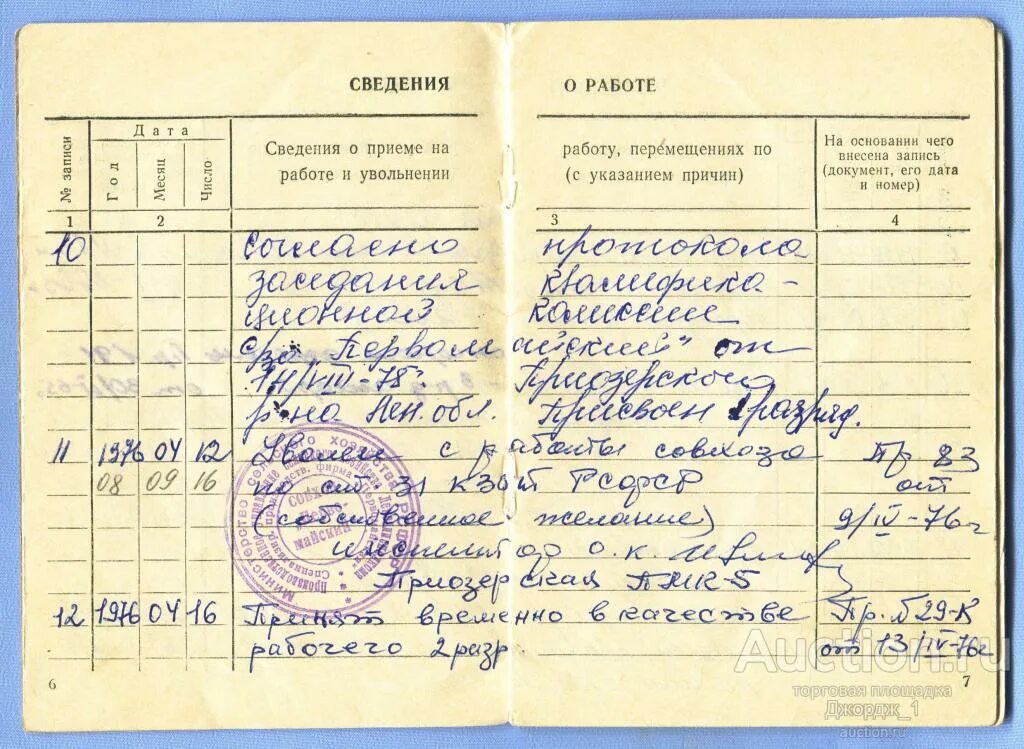 СВЕДЕНИЯ О РАБОТЕ
№ записи
Дата
Год
Месяц
Число
Сведения о приеме на работу, перемещениях по
работе и увольнении (с указанием причин)
На основании чего
внесена запись
(документ, его дата
и номер)
1 2 3 4
10 Согласно протокола
заседания квалифика-
ционной комиссии
с/з "Первомайский" от
Приозерского
р-на Лен. обл. Присвоен разряд.
11 1976 04 12 Уволен с работы совхоза Пр 83
08 09 16 по ст 31 КЗоТ РСФСР от
(собственное желание) 9/IV-76г
инспектор о.к.
Приозерская ПМК-5
12 1976 04 16 Принят временно в качестве Пр. №29-К
рабочего 2 разр. от 13/IV-76г
6 7
Auction.ru
торговая площадка
Джордж_1
auction.ru